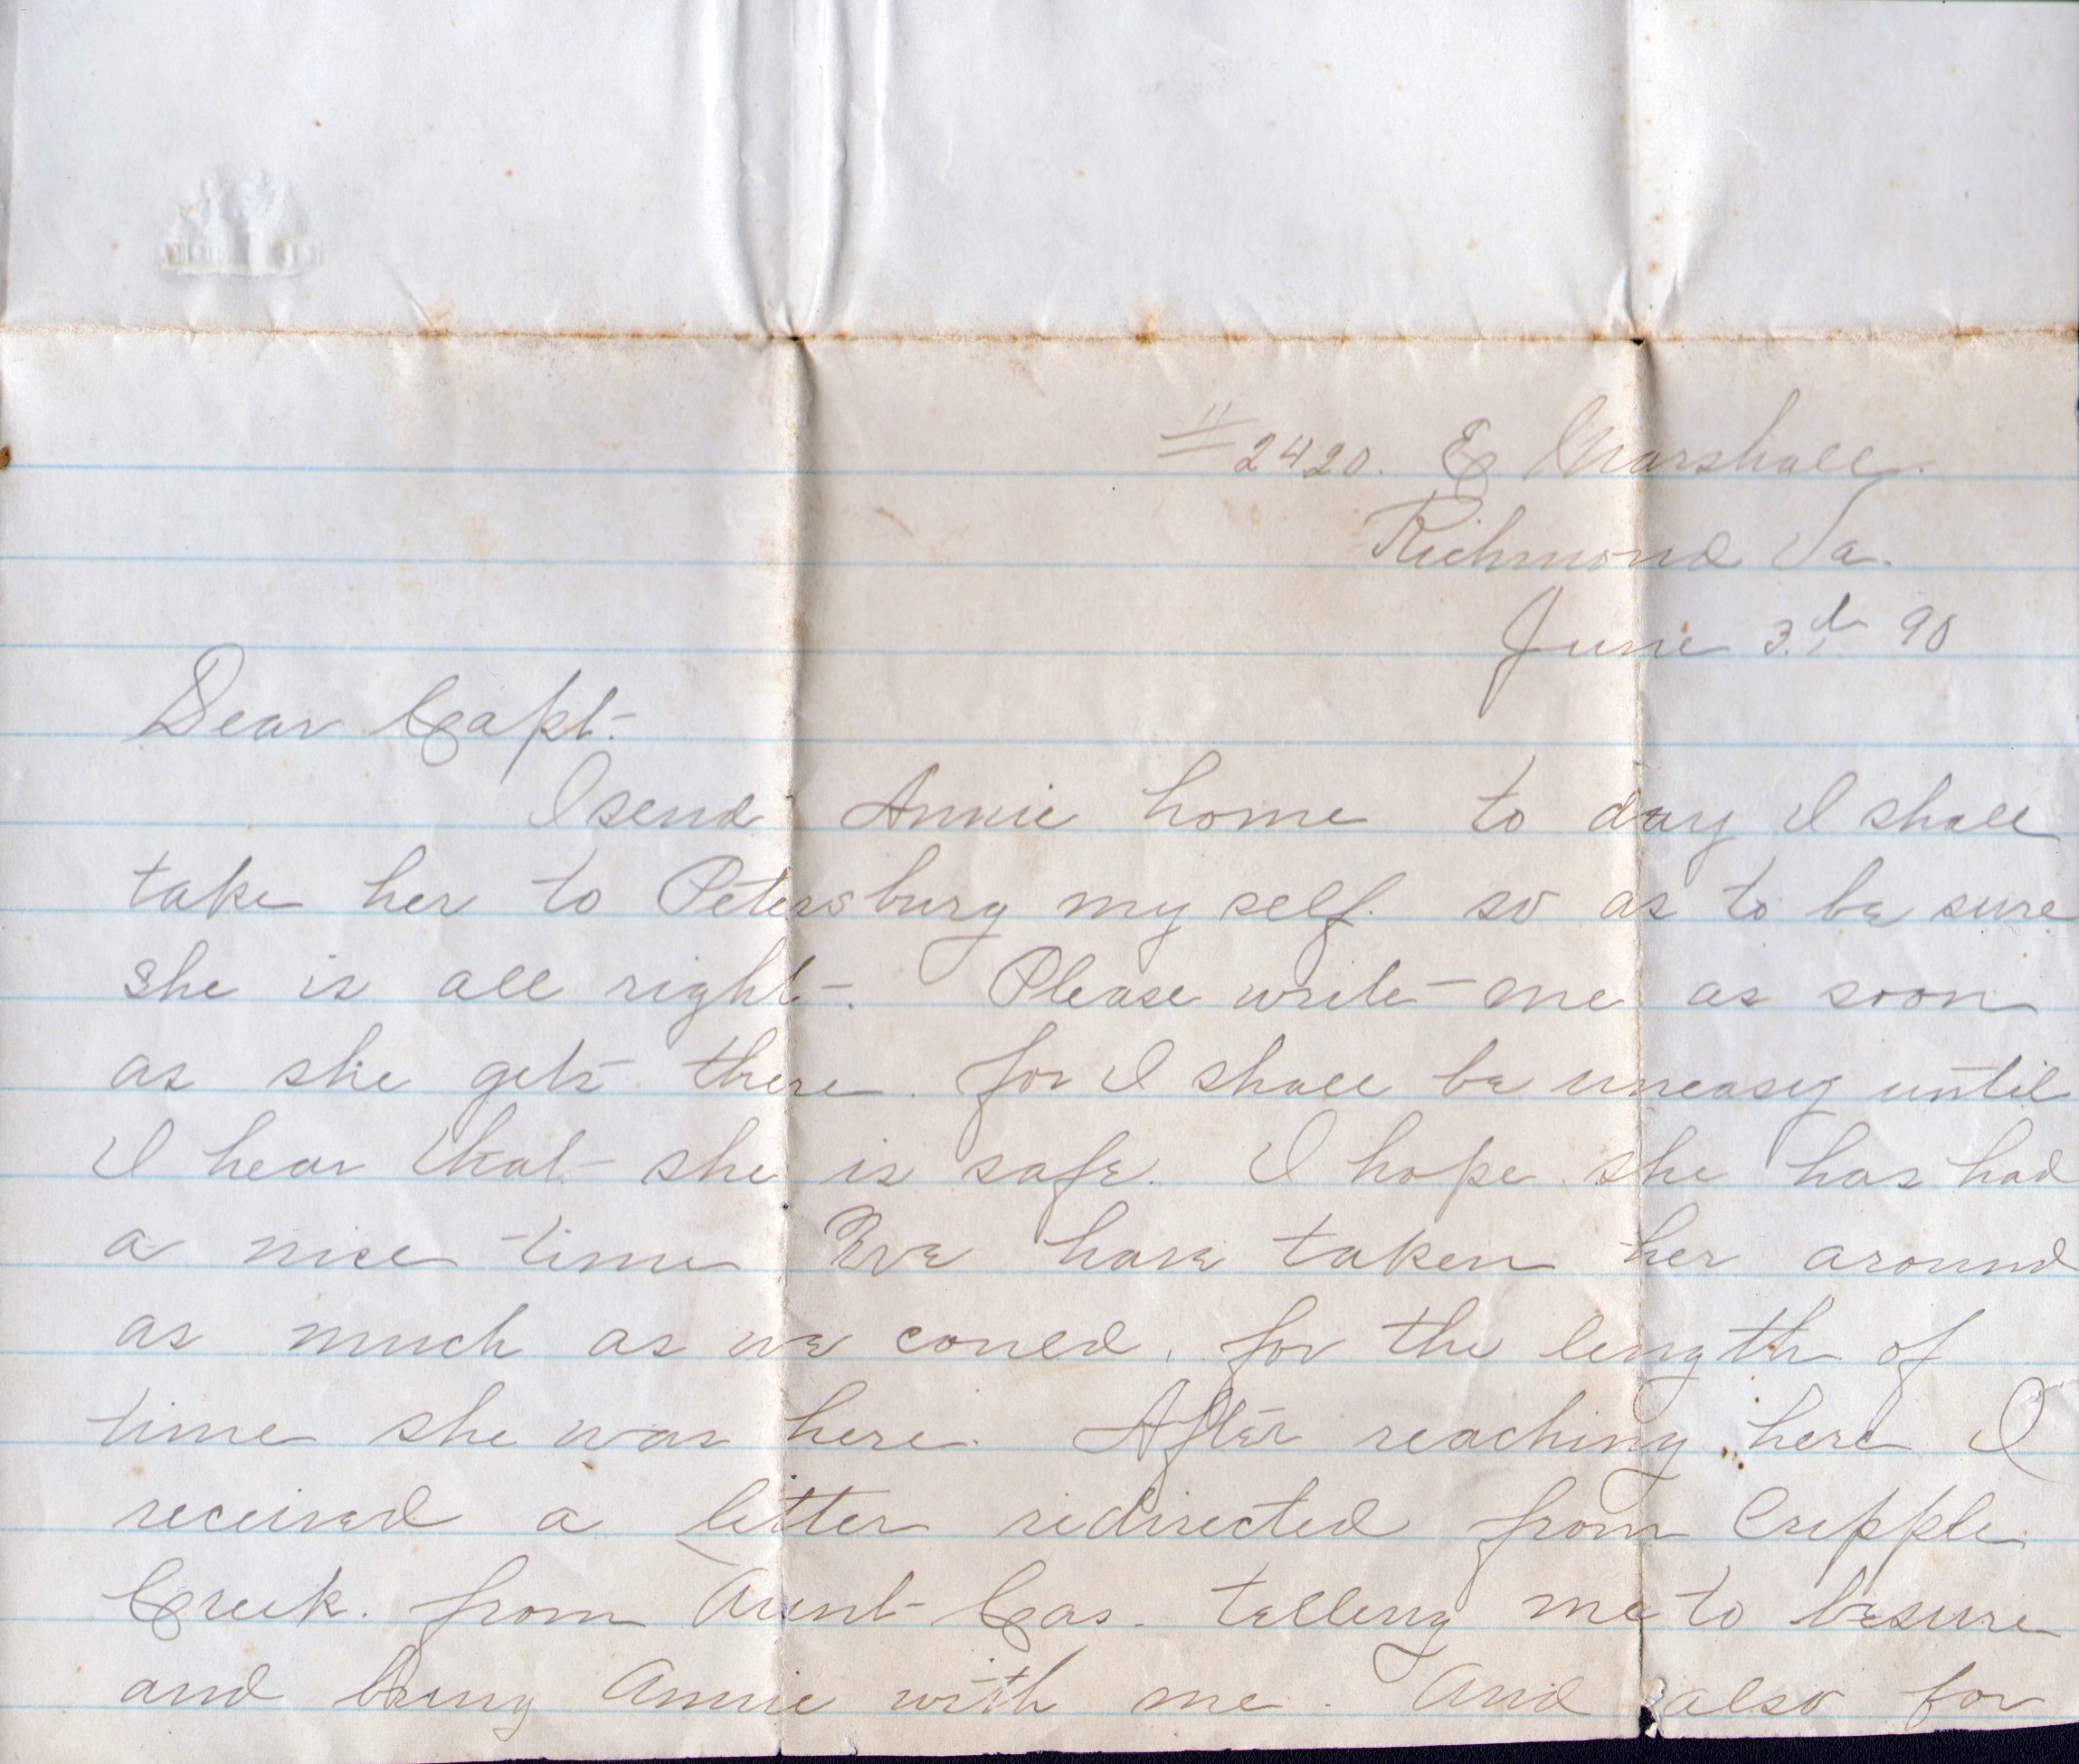 # 2420. E. Marshall.
Richmond Va.
June 3.d 90
Dear Capt.
I send Annie home to day I shall
take her to Petersburg my self. so as to be sure
she is all right. Please write me as soon
as she gets there. for I shall be uneasy until
I hear that she is safe. I hope she has had
a nice time We have taken her around
as much as we could, for the length of
time she was here. After reaching here I
received a letter redirected from Cripple
Creek. from Aunt Cas. telling me to besure
and bring Annie with me. And also for